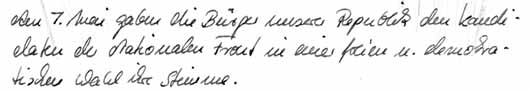 Am 7. Mai gaben die Bürger unserer Republik den Kandi-
daten der Nationalen Front in einer freien u. demokra-
tischen Wahl ihre Stimme.